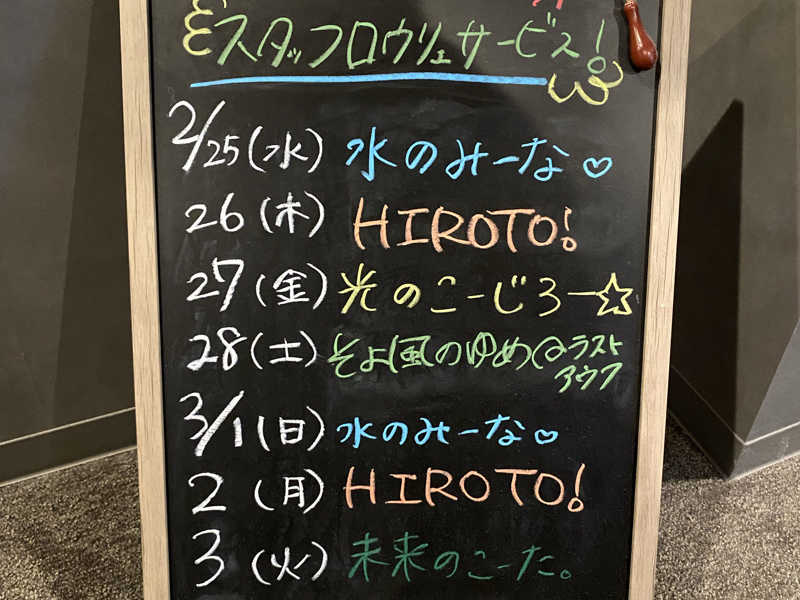 スタッフロウリュサービス!
2/25(水) 水のみーな♡
26(木) HIROTO!
27(金) 光のこーじろー☆
28(土) そよ風のゆめ@ラスト
アウフ
3/1(日) 水のみーな♡
2(月) HIROTO!
3(火) 未来のこーた。